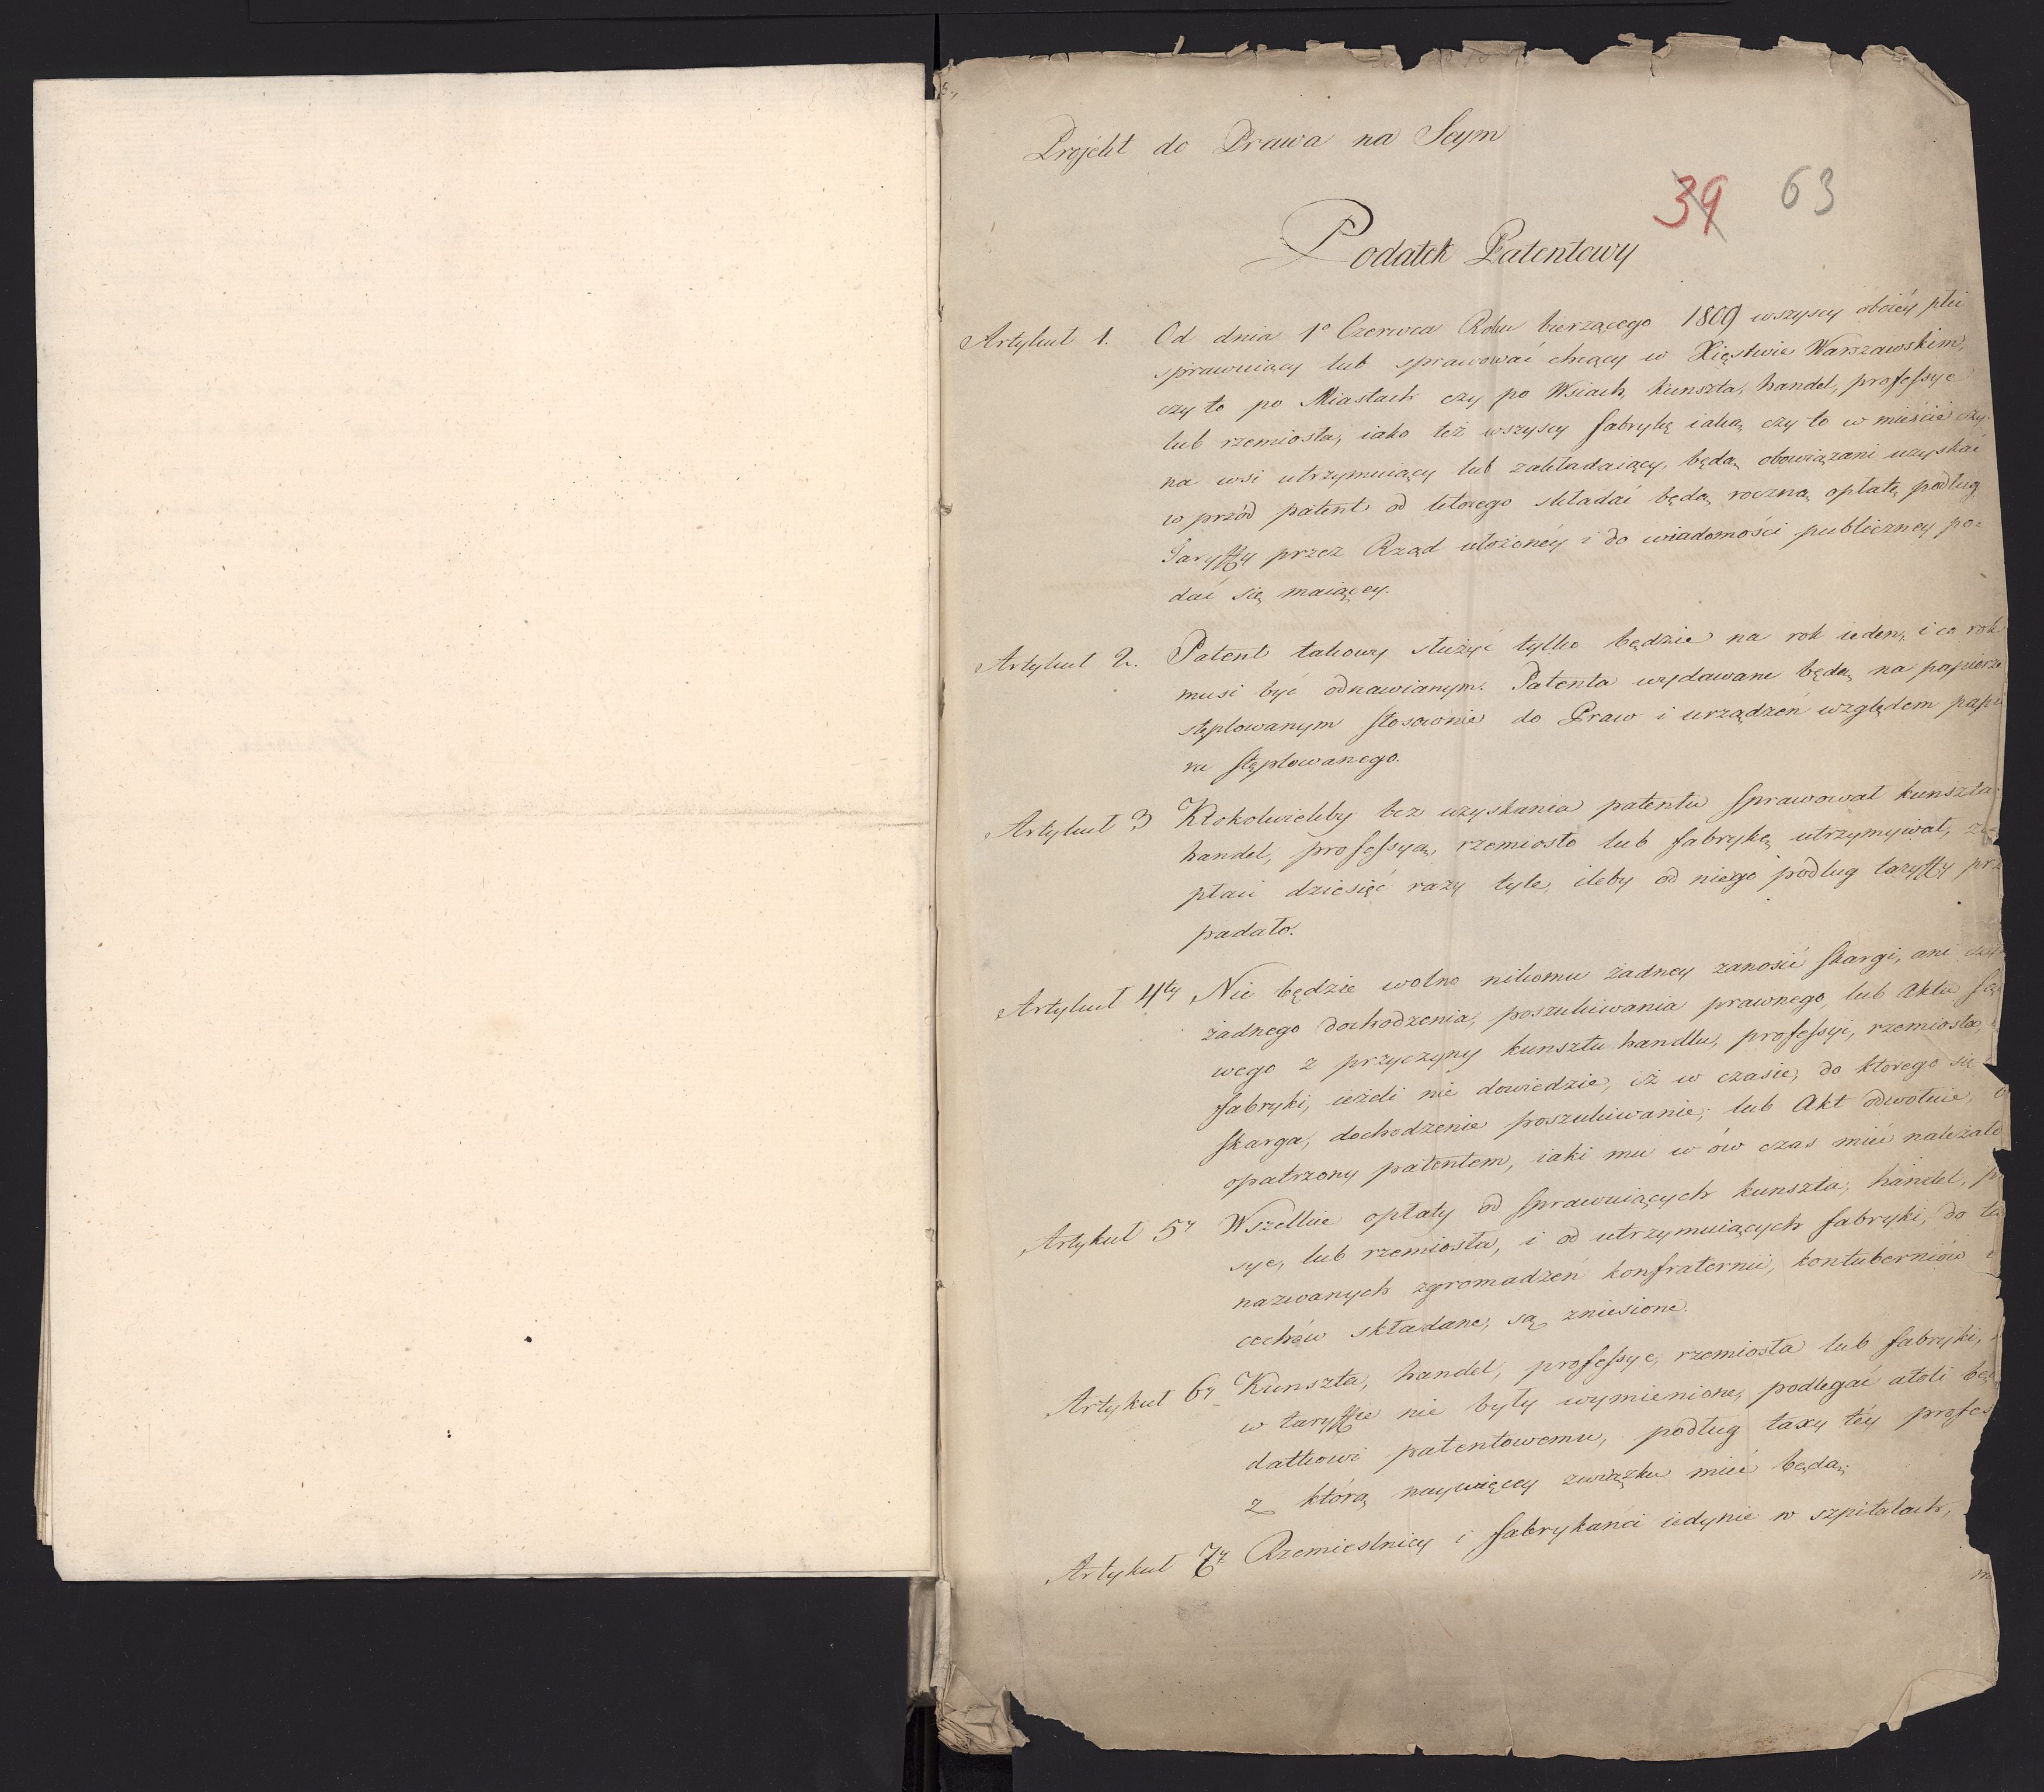 Projekt do Prawa na Seym
39 63
Podatek Patentowy
Artykuł 1. Od dnia 1º Czerwca Roku bierzącego 1809 wszyscy oboiéy płci
sprawuiący lub sprawować chcący w Xięstwie Warszawskim,
czy to po Miastach czy po Wsiach, kunszta, handel, professye
lub rzemiosła, iako też wszyscy fabrykę iaką czy to w mieście czy
na wsi utrzymuiący lub zakładaiący, będą obowiązani uzyskać
w przód patent od którego składać będą roczną opłatę podług
Taryffy przez Rząd ułożonéy i do wiadomości publiczney po=
dać się maiącey.
Artykuł 2. Patent takowy służyć tylko będzie na rok ieden, i co rok
musi być odnawianym. Patenta wydawane będą na papierze
stęplowanym stosownie do Praw i urządzeń względem papi
ru stęplowanego.
Artykuł 3 Ktokolwiekby bez uzyskania patentu sprawował kunszta
handel, professyą, rzemiosło lub fabrykę utrzymywał, za=
płaci dziesięć razy tyle, ileby od niego podług taryffy prz
padało.
Artykuł 4ty Nie będzie wolno nikomu żadney zanosić skargi, ani
żadnego dochodzenia, poszukiwania prawnego, lub Aktu są
wego z przyczyny kunsztu handlu, professyi, rzemiosła,
fabryki, ieżeli nie dowiedzie, iż w czasie, do którego się
skarga, dochodzenie poszukiwanie, lub Akt odwołuie,
opatrzony patentem, iaki mu w ów czas mieć należało
Artykuł 5y Wszelkie opłaty od sprawuiących kunszta, handel, pr
sye, lub rzemiosła, i od utrzymuiących fabryki, do
nazwanych zgromadzeń konfraternii, kontuberniów
cechów składane, są zniesione.
Artykuł 6y Kunszta, handel, professye, rzemiosła lub fabryki,
w taryffie nie były wymienione, podlegać atoli bę
datkowi patentowemu, podług taxy téy profes
z którą naywięcey związku mieć będą;
Artykuł 7y Rzemieslnicy i fabrykańci iedynie w szpitalach,